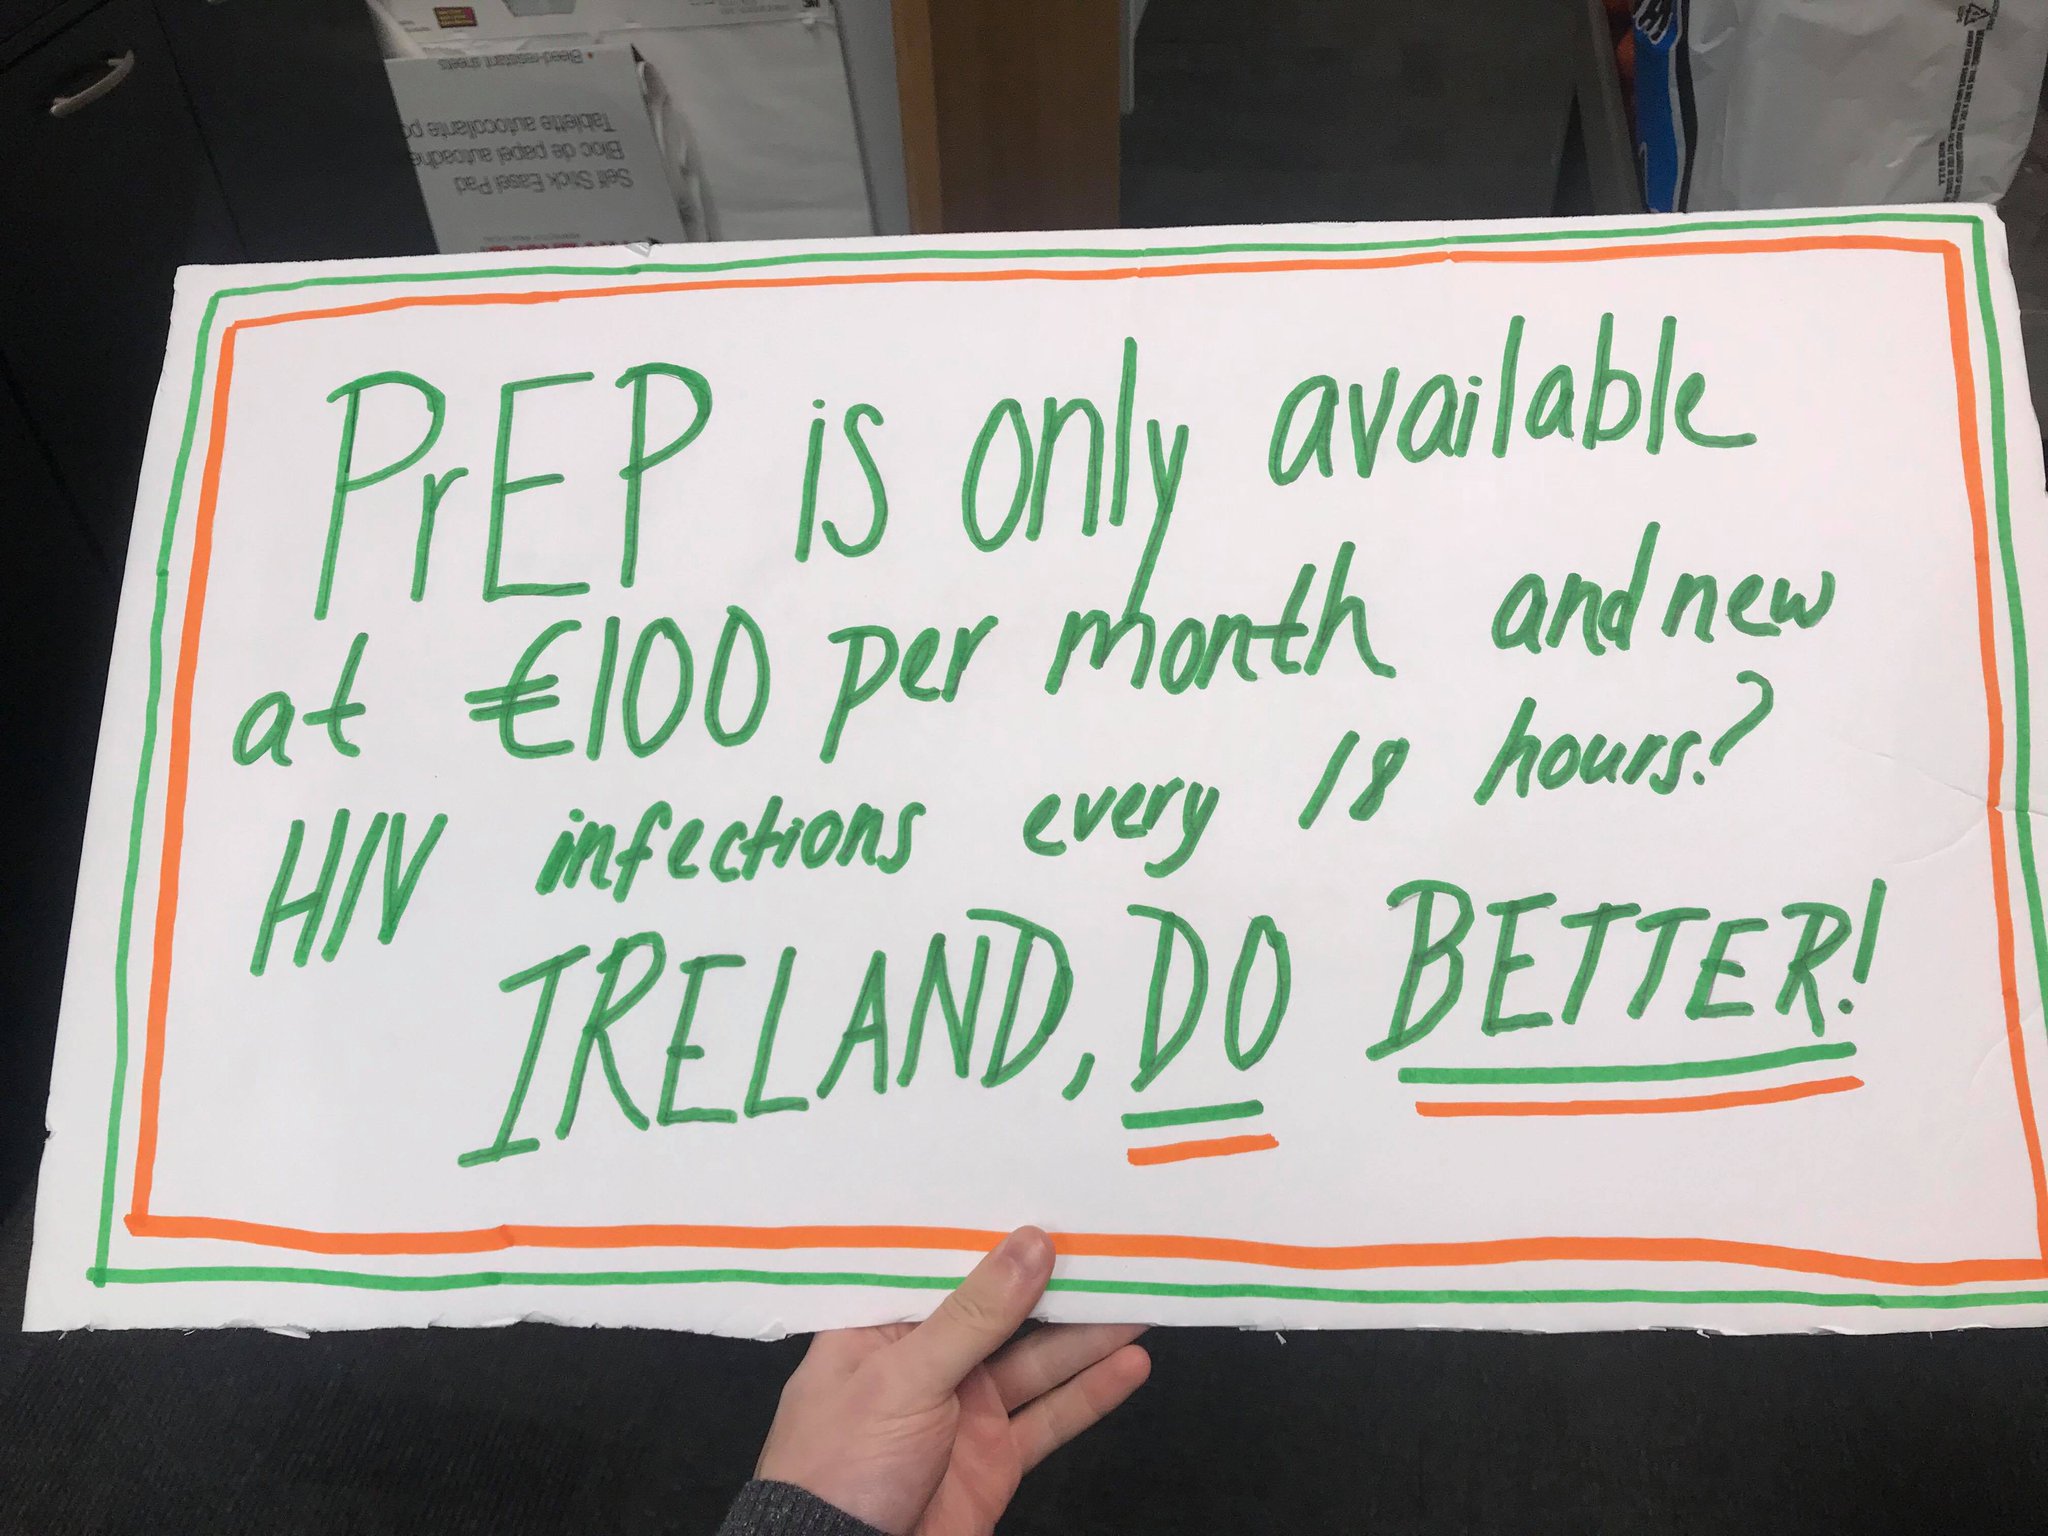 • Bleed-resistant sheets
Self Stick Easel Pad
Bloc de papel autoadhe
Tablette autocollante po
MADE IN U.S.A.
PrEP is only available
at €100 per month and new
HIV infections every 18 hours.?
IRELAND, DO BETTER!